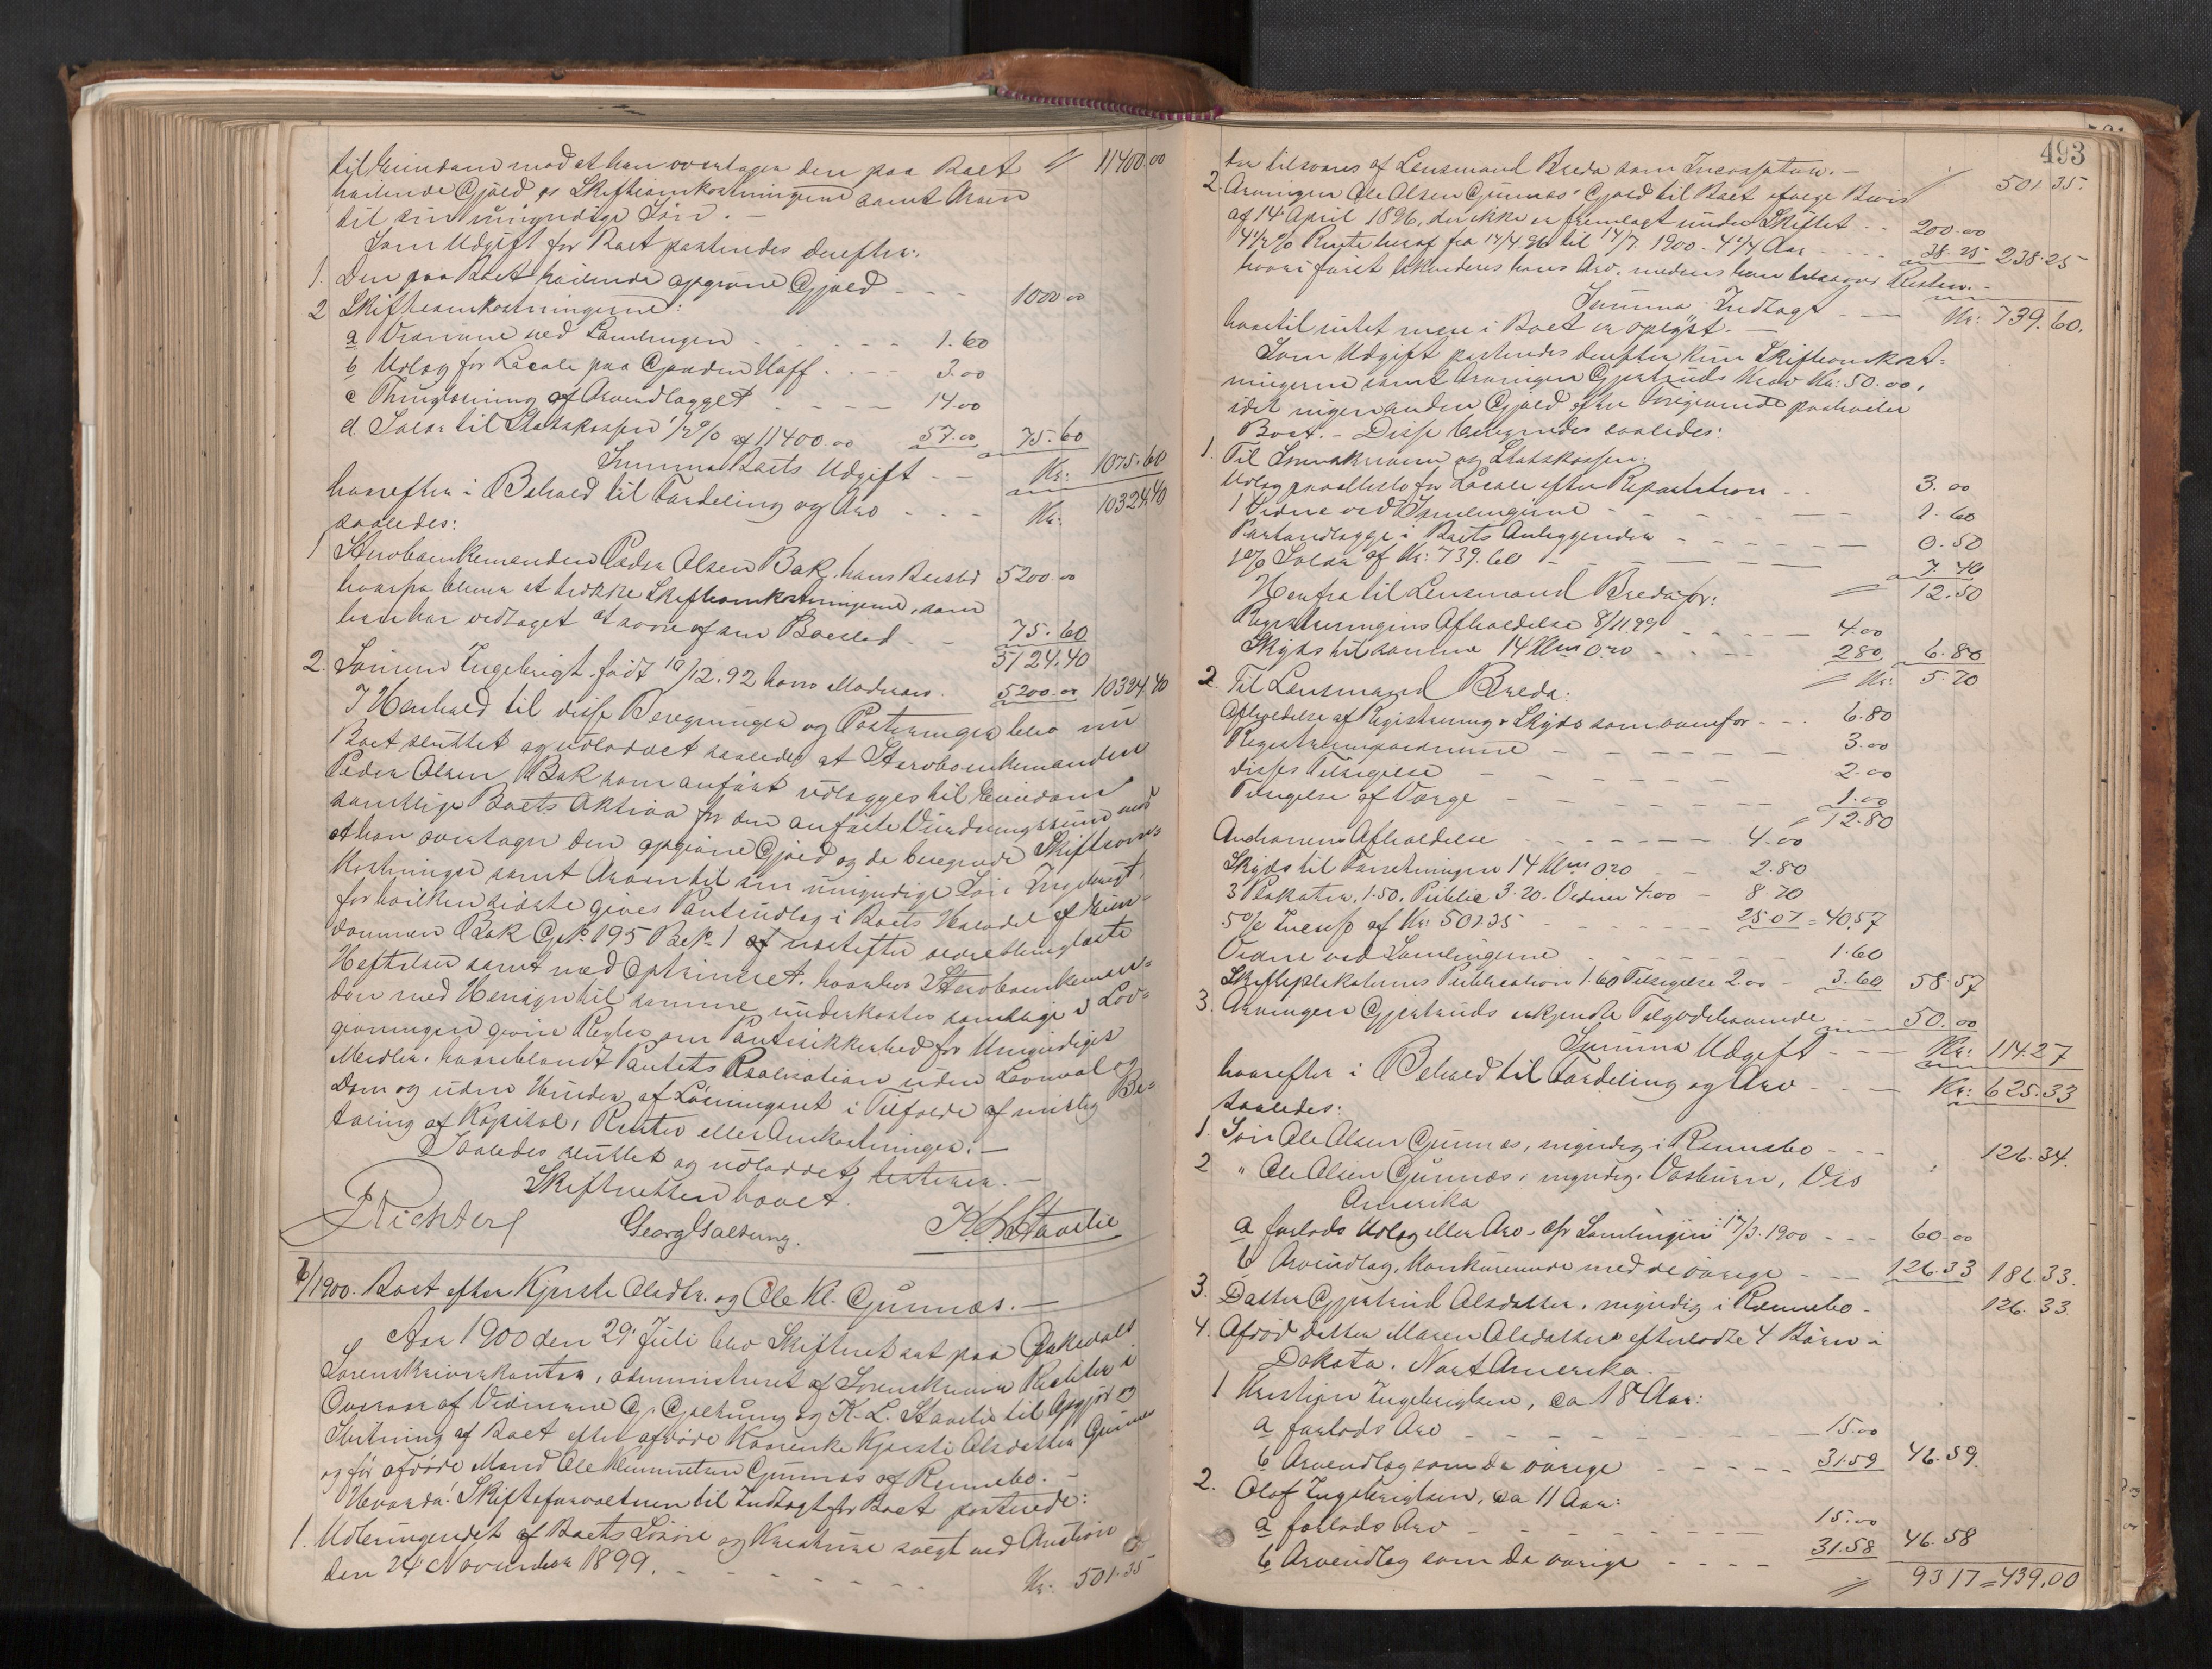 til Eiendom mod at han overtager den paa Boet // 11400.00
hvilende Gjæld og Skifteomkostningerne samt Arven
til sin umyndige Søn. —
Som Udgift for Boet posteredes derefter:
1. Den paa Boet hvilende opgivne Gjæld - - - 1000.00
2 Skifteomkostningerne:
a Vidnerne ved Samlingen - - - - - 1.60
b Udlæg for Locale paa Gaarden Hoff - - - 3.00
c Thinglæsning af Arveudlægget - - - 14.00
d. Salær til Statskassen 1/2 % af 11400.00 57.00 75.60
Summa Boets Udgift - - Kr: 1075.60
hvorefter i Behold til Fordeling og Arv - - - Kr. 10324.40
saaledes:
1 Stervboenkemanden Peder Olsen Bak, hans Boeslod 5200.00
hvorfra bliver at trække Skifteomkostningerne, som
han har vedtaget at svare af sin Boeslod - - 75.60
5124.40
2. Sønnen Ingebrigt, født 19/12.92 hans Mødrearv. 5200.00 10324.40
I Henhold til disse Beregninger og Posteringer blev nu
Boet sluttet og udloddet saaledes at Stervboenkemanden
Peder Olsen Bak som anført udlægges til Eiendom
samtlige Boets Aktiva for den anførte Vurderingssum mod
at han overtager den opgivne Gjæld og de beregnede Skifteom=
kostninger samt Arven til sin umyndige Søn Ingebrigt,
for hvilken sidste gives Pantudlæg i Boets Halvdel af Eien=
dommen Bak G.No. 195 B.No. 1 af næstefter
Heftelser samt med Optrinsret, hvorhos Stervboenkeman=
den med Hensyn til samme underkastes samtlige i Lov=
givningen givne Regler om Pantesikkerhed for Umyndiges
Midler, hvoriblandt Pantets Realisation uden Lovmaal og
Dom og uden Hinder af Løsningsret i Tilfælde af mislig Be=
taling af Kapital, Renter eller Omkostninger. —
Saaledes sluttet og udloddet, testerer. —
Skifteretten hævet.
Richter Georg Galtung. K. L. Stavilie
/1900. Boet efter Kjersti Olsdtr. og Ole Kl. Gunnæs. —
Aar 1900 den 29. Juli blev Skifteret sat paa Orkedals
Sorenskriverkontor, administreret af Sorenskriver Richter i
Overvær af Vidnerne G. Galtung og K. L. Stavilie til Opgjør og
Slutning af Boet efter afdøde Kaarenke Kjersti Olsdatter Gunnæs
og før afdøde Mand Ole Klemmetsen Gunnæs af Rennebo. —
Hvorda: Skifteforvalteren til Indtægt for Boet posterede:
1. Udbringendet af Boets Løsøre og Kreature solgt ved Auction
den 24 November 1899. - - - - - - - Kr: 501.35
493
der tilsvares af Lensmand Breda som Incassator. — // 501.35.
2. Arvingen Ole Olsen Gunnæs' Gjæld til Boet ifølge Bevis
af 14 April 1896, der ikke er fremlagt under Skiftet - - 200.00
4 1/2 % Rente heraf fra 14/4.96 til 14/7. 1900 - 4 1/4 Aar - - - 38.25 238.25
hvori først likvideres hans Arv, medens han tilsvarer Resten. -
Summa Indtægt - - - Kr: 739.60.
hvortil intet mere i Boet er oplyst. —
Som Udgift posteredes derefter kun Skifteomkost=
ningerne samt Arvingen Gjertruds Krav Kr: 50.00,
idet ingen anden Gjæld efter Foregivende paahviler
Boet. - Disse beregnedes saaledes:
1. Til Sorenskriveren og Statskassen:
Udlæg paa Herlo for Locale efter Repartition - - 3.00
1 Vidne ved Samlingerne - - - - 1.60
Portoudlægge i Boets Anliggender - - - - 0.50
1 % Salær af Kr: 739.60 - - - - 7.40
// 12.50
Herfra til Lensmand Breda for:
Registreringens Afholdelse 8/11.99 - - - - 4.00
Skyds til samme 14 Klm 0.20 - - - 2.80 6.80
// Kr: 5.70
2. Til Lensmand Breda:
Afholdelse af Registrering + Skyds som ovenfor - - 6.80
Registreringsvidnerne - - - - - 3.00
disses Tilsigelse - - - - - - 2.00
Tilsigelse af Værge - - - - - 1.00
12.80
Auctionens Afholdelse - - - - 4.00
Skyds til Forretningen 14 Klm 0.20 - - 2.80
3 Plakater, 1.50, Public 3.20. Vidner 4.00 - 8.70
5 % Incass af Kr: 501.35 - - - - 25.07 = 40.57
Vidne ved Samlingerne - - - - - 1.60
Skifteplakaternes Publication 1.60 Tilsigelse 2.00 - 3.60 58.57
3. Arvingen Gjertruds erkjendte Tilgodehavende 50.00
Summa Udgift - - - Kr: 114.27
hvorefter i Behold til Fordeling og Arv - - Kr: 625.33
saaledes:
1. Søn Ole Olsen Gunnæs, myndig i Rennebo - - - 126.34.
2 " Ole Olsen Gunnæs, myndig, Vasburn, Vis
Amerika
a forlods Udlæg eller Arv, cfr Samlingen 17/3.1900 - - - 60.00
b Arveudlæg, konkurrerende med de øvrige - - - 126.33 186.33.
3. Datter Gjertrud Olsdatter, myndig i Rennebo - 126.33.
4. Afdød datter Maren Olsdatter efterladte 4 Børn i
Dakota, Nord Amerika —
1 Kristian Ingebrigtsen, ca 18 Aar:
a forlods Arv - - - - - - 15.00
b Arveudlæg som de øvrige - - - - - 31.59 46.59.
2. Olof Ingebrigtsen, ca 11 Aar:
a forlods Arv - - - - - - 15.00
b Arveudlæg som de øvrige - - - - 31.58 46.58
// 93.17 = 439.00